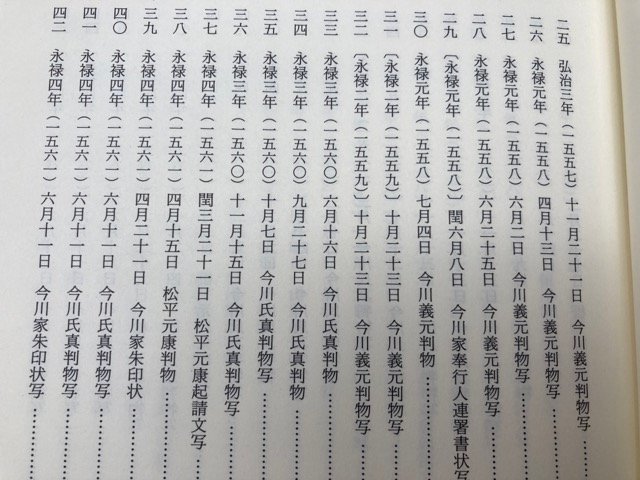 二五 弘治三年（一五五七）十一月二十一日 今川義元判物写……
二六 永禄元年（一五五八）四月十三日 今川義元判物写……
二七 永禄元年（一五五八）六月二日 今川義元判物写……
二八 永禄元年（一五五八）六月二十五日 今川義元判物写……
二九 〔永禄元年（一五五八）〕閏六月八日 今川家奉行人連署書状写
三〇 永禄元年（一五五八）七月四日 今川義元判物……
三一 〔永禄二年（一五五九）〕十月二十三日 今川義元判物写……
三二 〔永禄二年（一五五九）〕十月二十三日 今川義元判物写……
三三 永禄三年（一五六〇）六月十六日 今川氏真判物……
三四 永禄三年（一五六〇）九月二十七日 今川氏真判物……
三五 永禄三年（一五六〇）十月七日 今川氏真判物写……
三六 永禄三年（一五六〇）十一月十五日 今川氏真判物写……
三七 永禄四年（一五六一）閏三月二十一日 松平元康起請文写……
三八 永禄四年（一五六一）四月十五日 松平元康判物……
三九 永禄四年（一五六一）四月二十一日 今川家朱印状……
四〇 永禄四年（一五六一）六月十一日 今川氏真判物写……
四一 永禄四年（一五六一）六月十一日 今川氏真判物写……
四二 永禄四年（一五六一）六月十一日 今川家朱印状写……